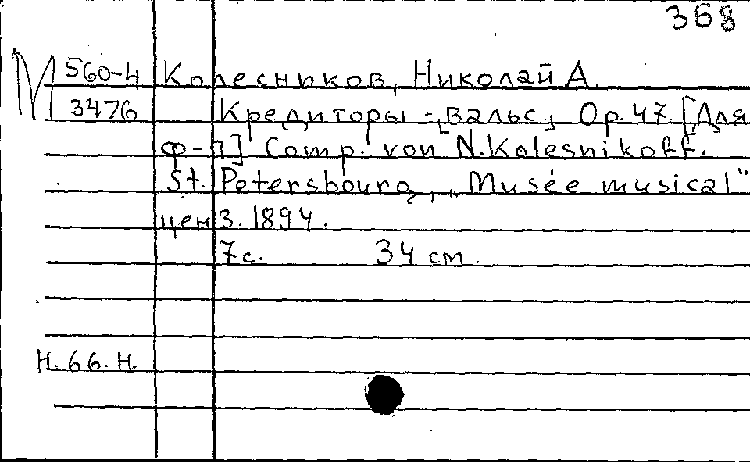 368
М 560-4 Колесников, Николай А.
3476 Кредиторы - [вальс] Op. 47. [Для
ф-п] Comp. von N. Kolesnikoff.
St. Petersbourg, „Musée musical"
ценз. 1894.
7 с. 34 см.
Н. 66. Н.